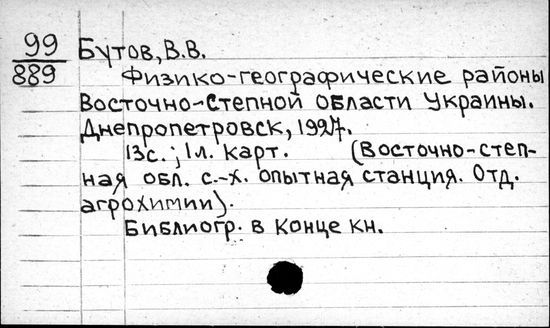 99 Бутов, В.В.
889
Физико-географические районы
Восточно-Степной области Украины.
Днепропетровск, 1927.
13с.; 1л. карт. (Восточно-степ-
ная обл. с.-х. опытная станция. Отд.
агрохимии).
Библиогр. в конце кн.